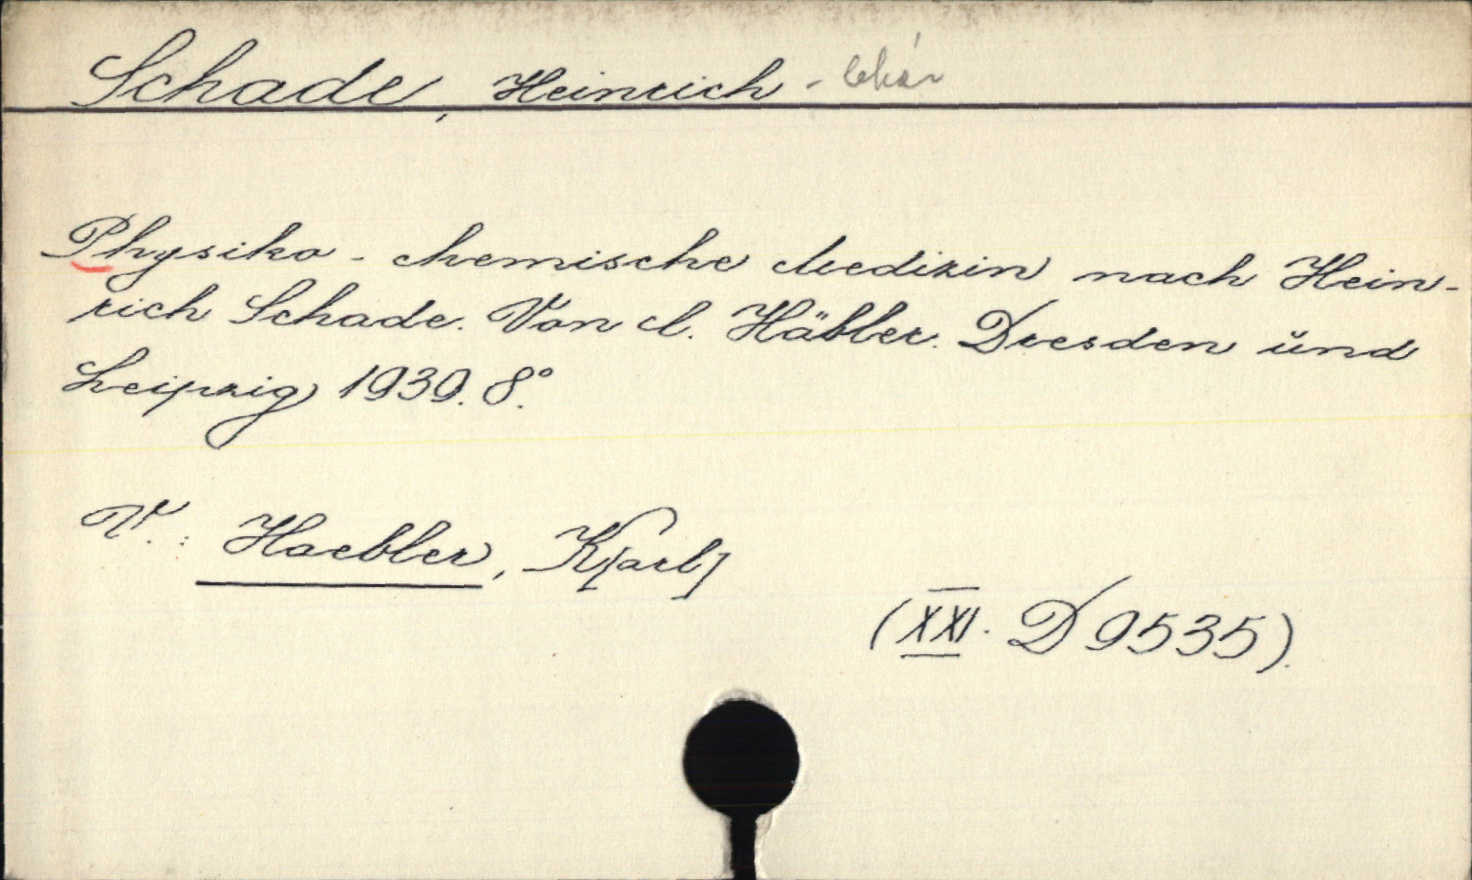 Schade, Heinrich - lékař
Physiko-chemische Medizin nach Hein-
rich Schade. Von C. Häbler. Dresden und
Leipzig 1939. 8°.
V.: Haebler, K[arl]
(XXI. D 9535).